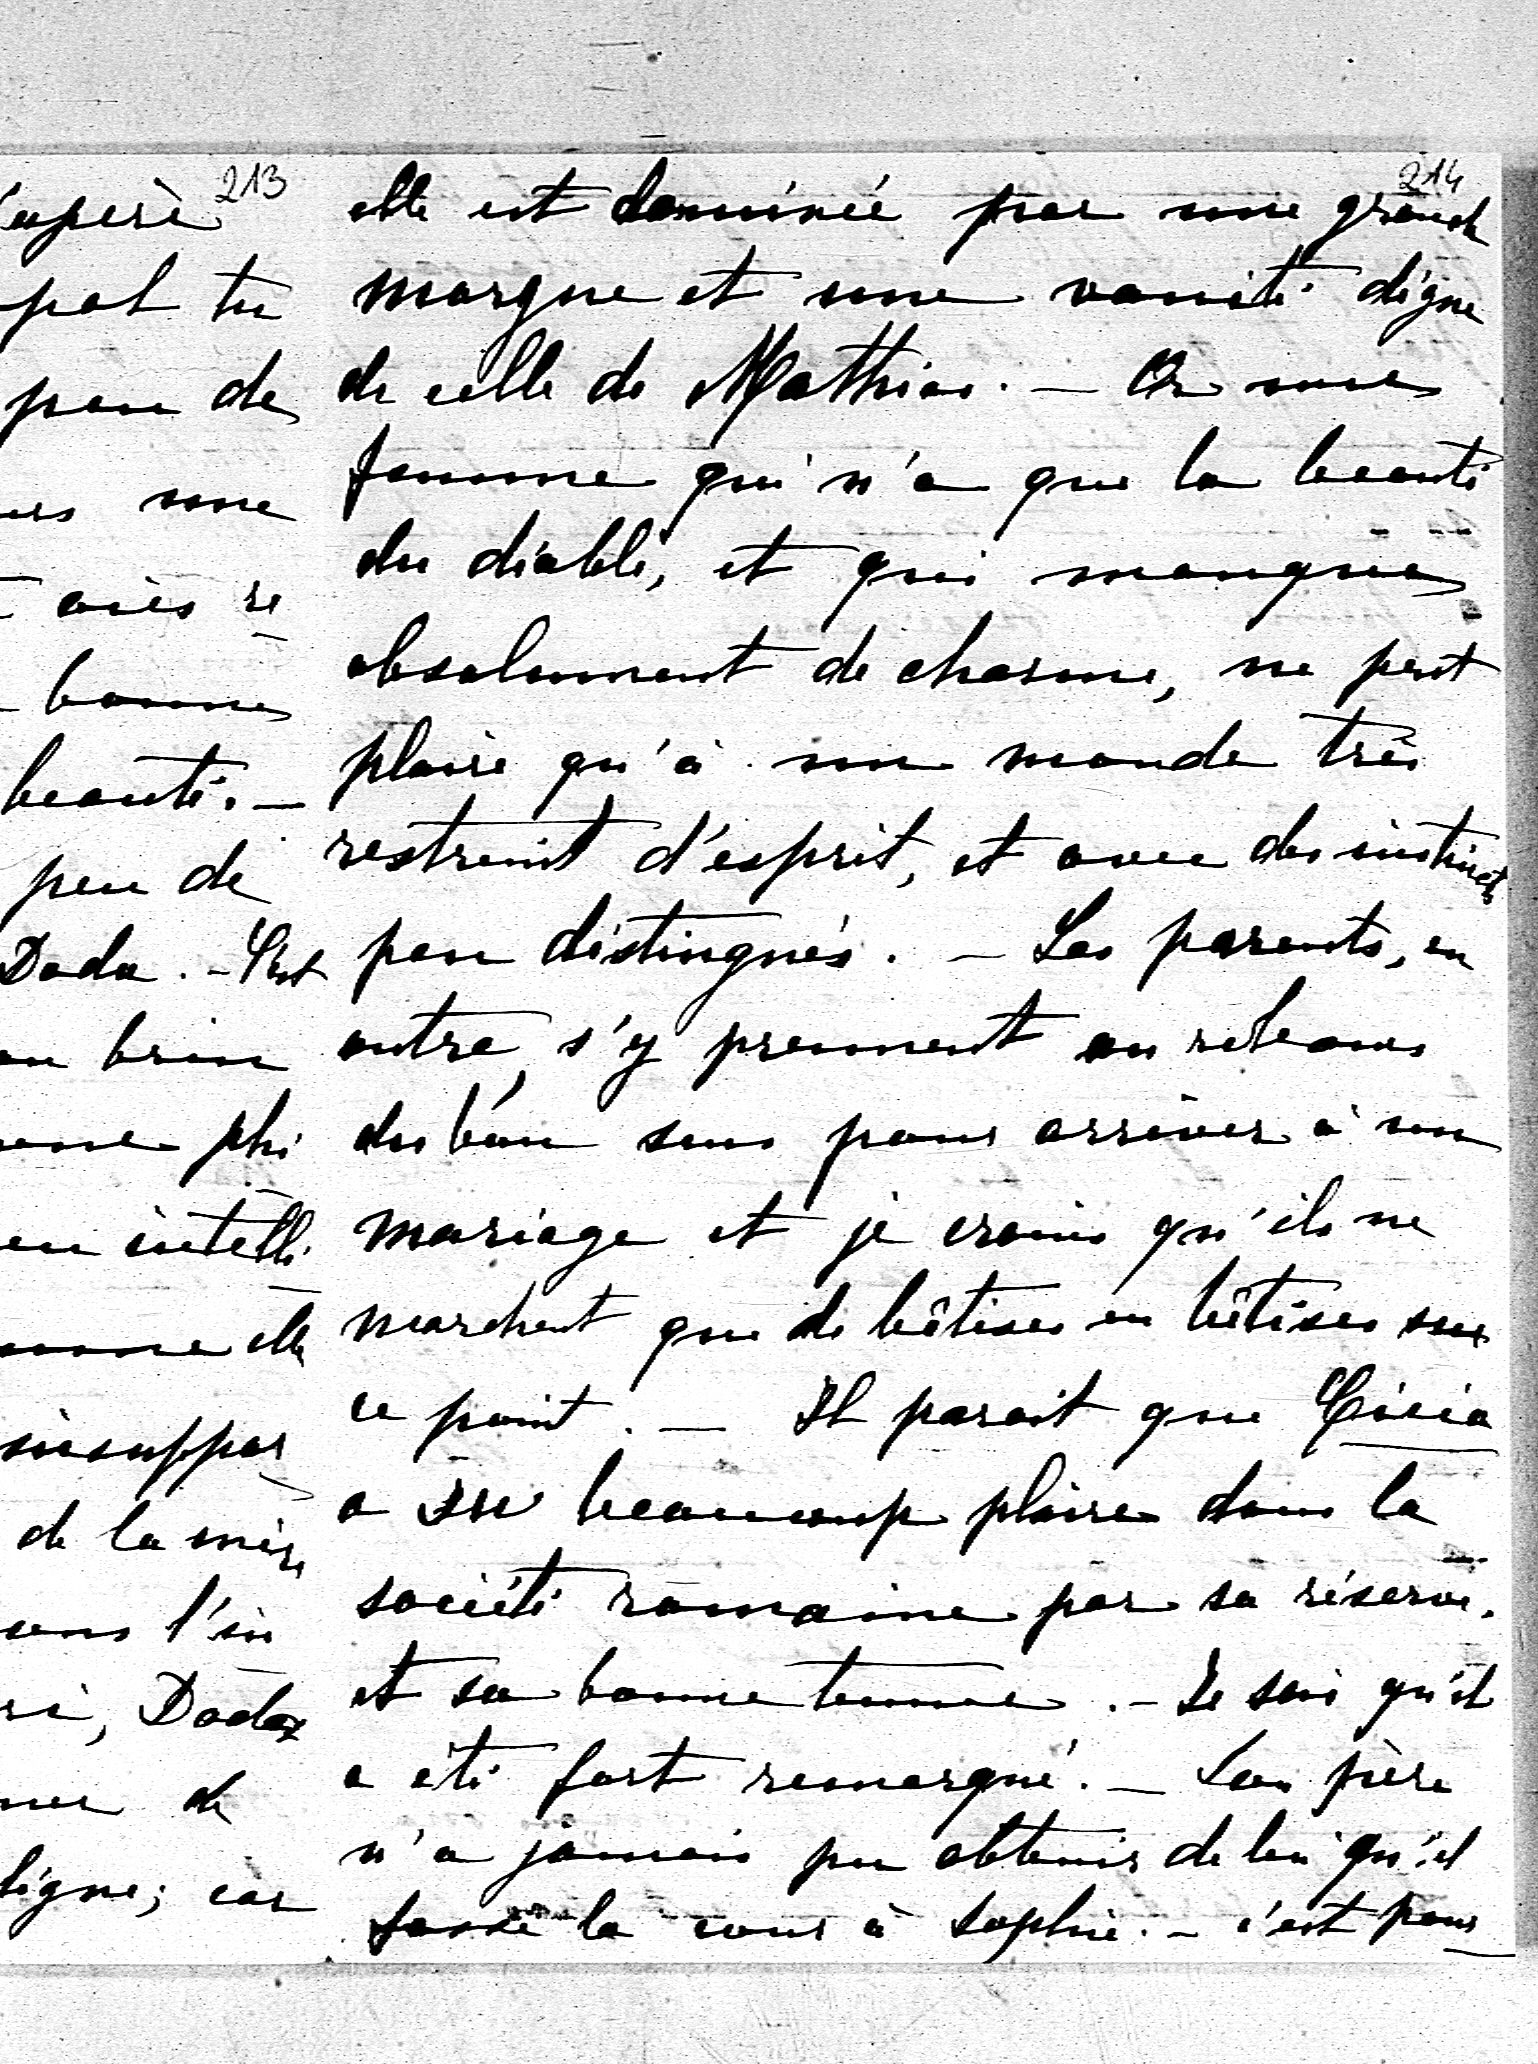 213
pol tu
peu de
une
bonne
beauté. —
peu de
Dada. - C'est
brin
phi
intelli
elle
insuppor
de la mère
l'in
Dada
de
ligne; car
214
elle est dominée par une grande
morgue et une vanité digne
de celle de Mathias. — Or une
femme qui n'a que la beauté
du diable, et qui manque
absolument de charme, ne peut
plaire qu'à un monde très
restreint d'esprit, et avec des instincts
peu distingués. — Les parents, en
outre, s'y prennent au rebours
du bon sens pour arriver à un
mariage et je crains qu'ils ne
marchent que de bêtises en bêtises sur
ce point. — Il parait que Cicia
a su beaucoup plaire dans la
société romaine par sa réserve,
et sa bonne tenue. — Je sais qu'il
a été fort remarqué. — Son père
n'a jamais pu obtenir de lui qu'il
fasse la cour à Sophie. — c'est pour